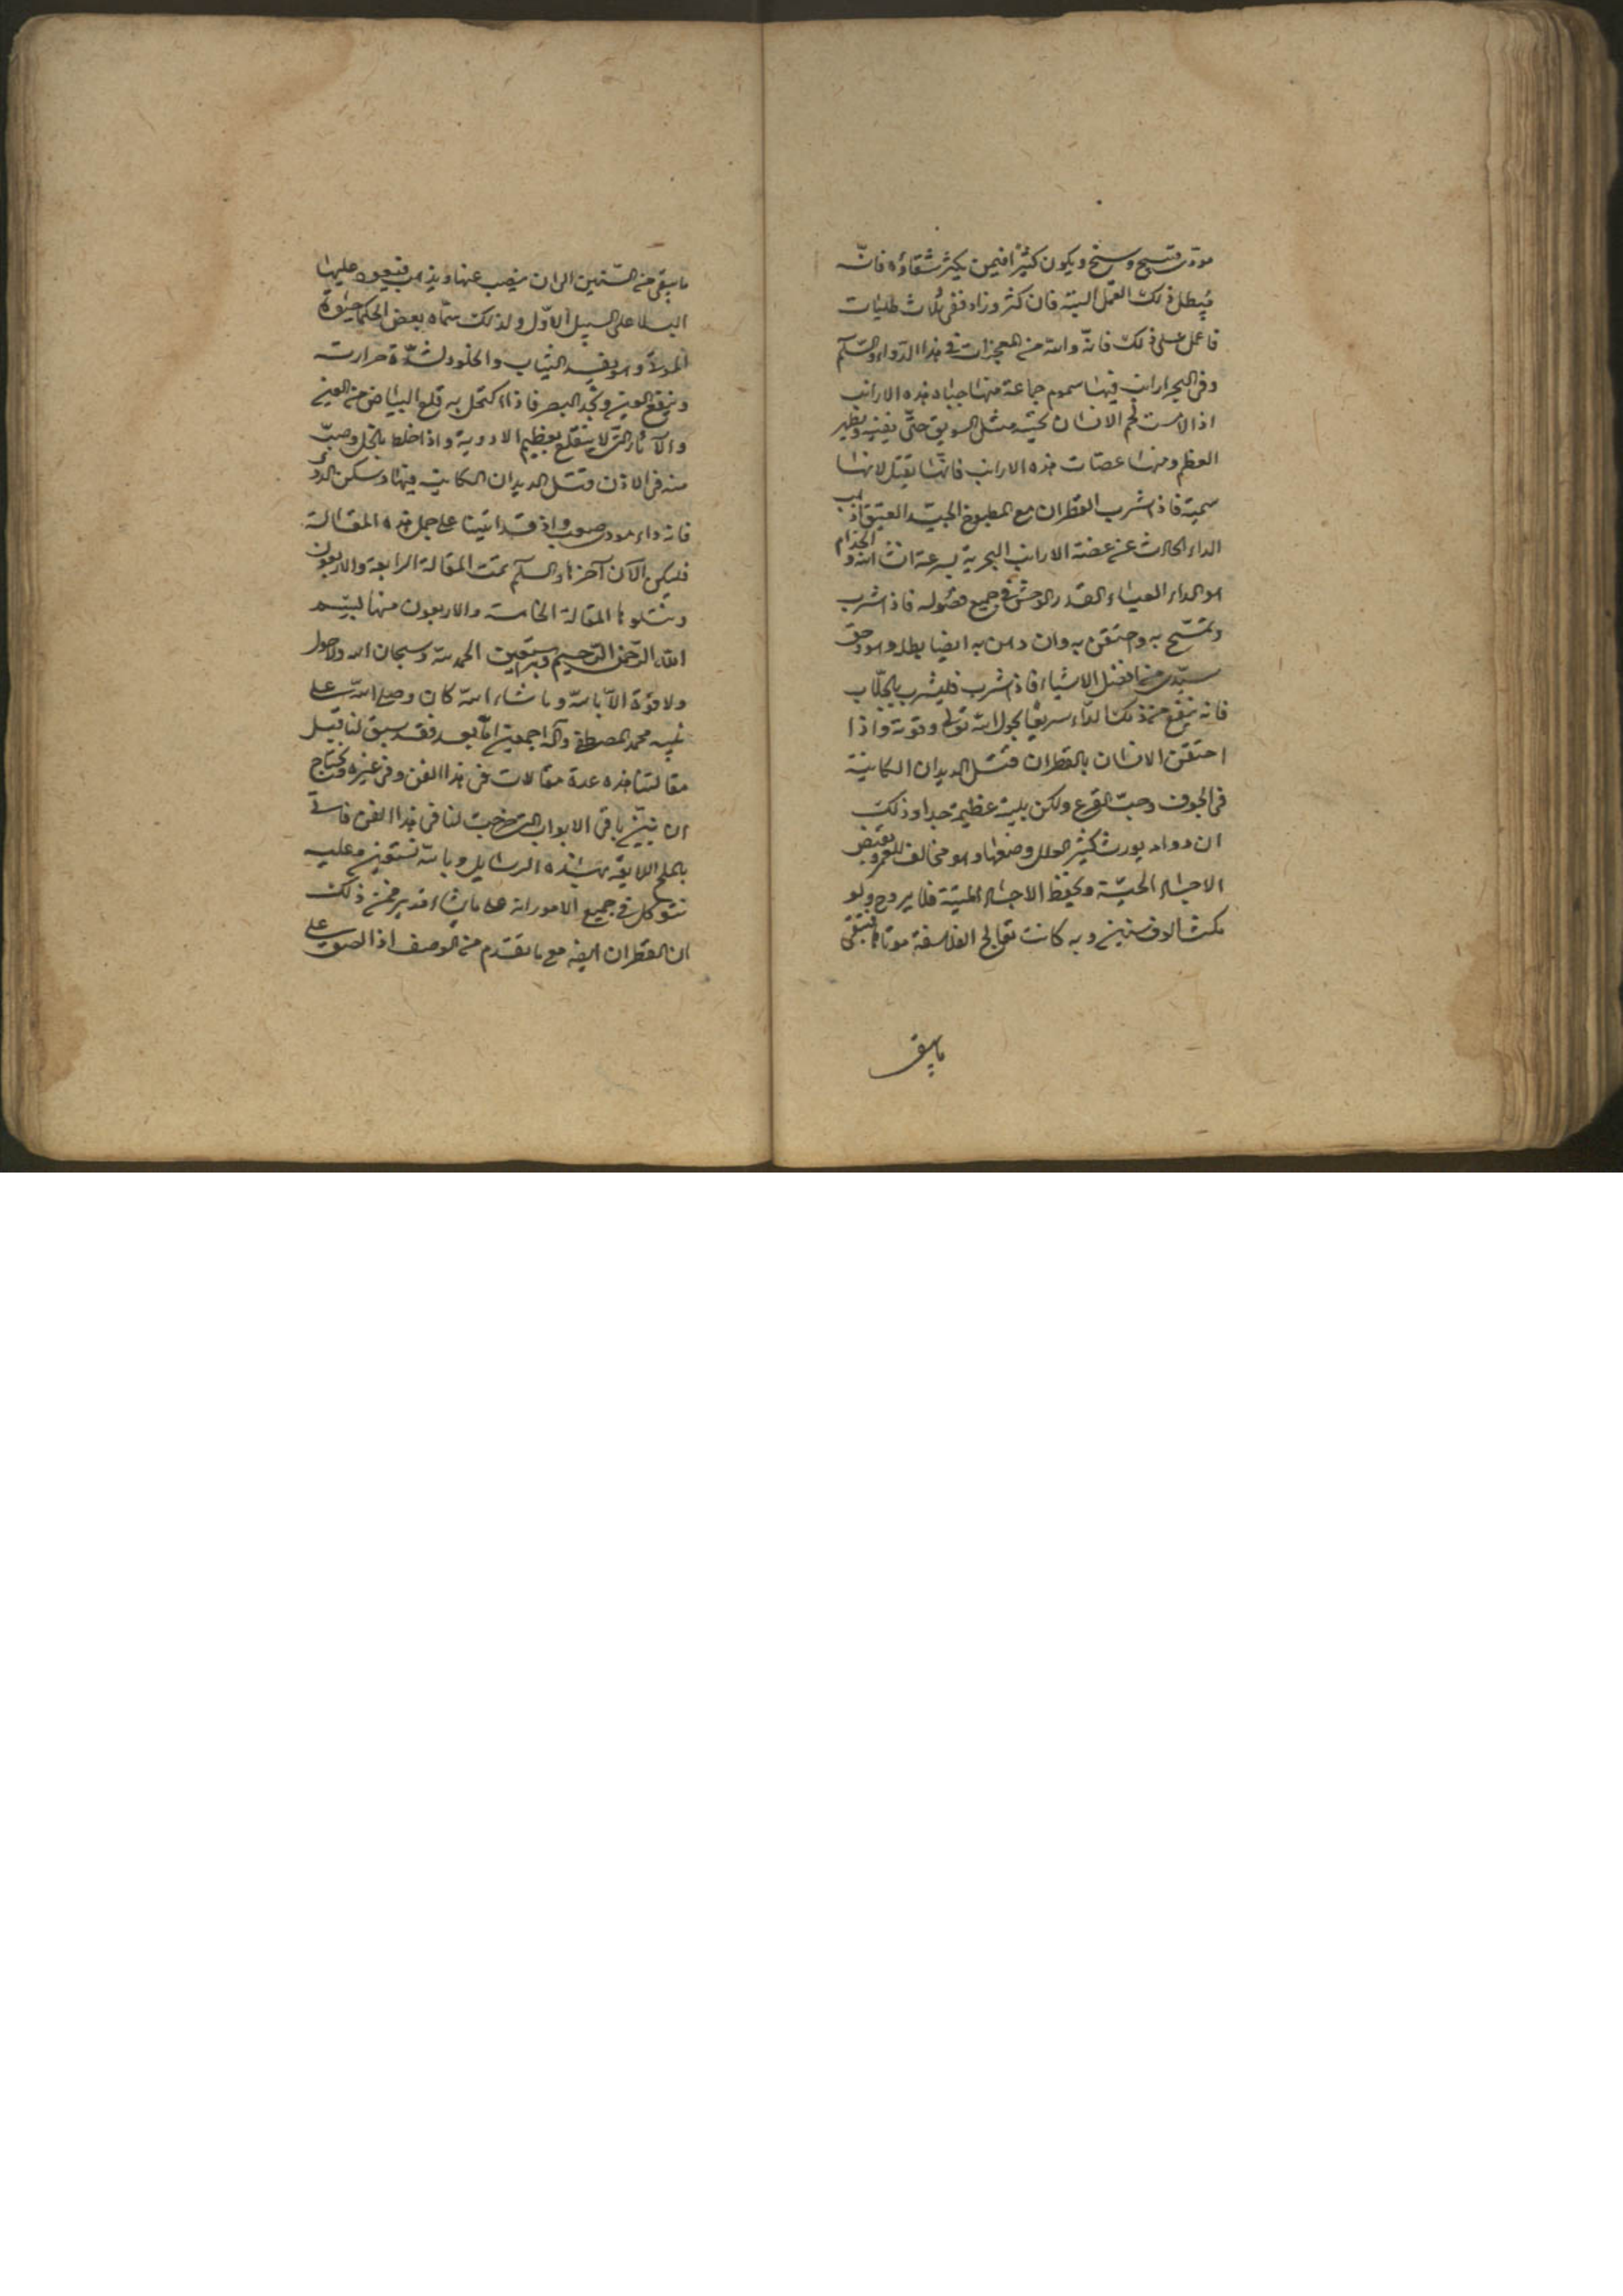 موذى قبيح وسخ ويكون كثيرًا فيمن يكثر شقاؤه فانّه
يبطل ذلك العمل البتة فان كثر وزاد ففى ثلاث طليات
فاعمل على ذلك فانّه والله من المعجزات فى هذا الدواء والسّلم
وفى البحر ارانب فيها سموم جماعة منها جباه هذه الارانب
اذا لامست لحم الانسان تحته مثل السويق حتّى يفنيه ويظهر
العظم ومنها عضات هذه الارانب فانّها تقتل لانها
سمية فاذا شرب القطران مع المطبوخ الجيّد العتيق اذهب
الداء الحادث عن عضة الارانب البحرية بسرعة ان شاء الله والجذام
هو الداء العياء القذر الوحش فى جميع فصوله فاذا شرب
وتمسّح به واحتقن به وان دهن به ايضا بطل وهو وحق
سيّدى من افضل الاشياء فاذا شرب فليشرب بالجلّاب
فانه ينفع من ذلك الداء سريعًا بحول الله تعالى وقوته واذا
احتقن الانسان بالقطران قتل الديدان الكاينة
فى الجوف وحبّ القرع ولكن بلية عظيمة جدا وذلك
ان دواه يورث كثير العلل وصنعها وهو مخالف للعمر ويقبض
الاجساد الحيّة ويحفظ الاجساد الميّتة فلا يروح ولو
مكث الوف سنين وبه كانت تعالج الفلاسفة موتاها فيبقى
مايبقى
مايبقى من السنين الى ان ينصب عنها ويذهب فيعود عليها
البلا على السبيل الاوّل ولذلك سمّاه بعض الحكما حيوة
الموتى وهو يفسد الثياب والجلود لشدّة حرارته
وينفع العين ويحد البصر فاذا اكتحل به قلع البياض من العين
والآثار التى لا ينقلع بعظيم الادوية واذا خلط بالخل وصبّ
منه فى الاذن قتل الديدان الكاينة فيها وسكن الدوى
فانه داء موذى صعب واذ قد اتينا على جمل هذه المقالة
فليكن الآن آخرها والسلم تمت المقالة الرابعة والاربعون
وتتلوها المقالة الخامسة والاربعون منها بسم
الله الرّحمن الرّحيم وبه نستعين الحمد لله وسبحان الله ولا حول
ولا قوّة الّا بالله وما شاء الله كان وصلى الله على
نبيه محمد المصطفى وآله اجمعين امّا بعد فقد سبق لنا قبل
مقالتنا هذه عدة مقالات فى هذا الفن وفى غيره ونحتاج
ان نبيّن باقى الابواب التى خرجت لنا فى هذا الفن فاتى
بالملح اللايقة بهذه الرسايل وبالله نستعين وعليه
نتوكل فى جميع الامور انه على مايشاء قدير فمن ذلك
ان القطران ايضًه مع ما تقدم من الوصف اذا لصق على